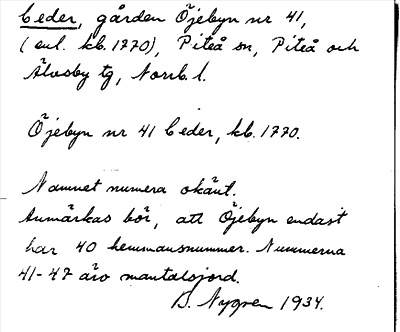 Ceder, gården Öjebyn nr 41,
(enl. kb. 1770), Piteå sn, Piteå och
Älvsby tg, Norrb. l.
Öjebyn nr 41 Ceder, kb. 1770.
Namnet numera okänt.
Anmärkas bör, att Öjebyn endast
har 40 hemmansnummer. Nummerna
41-47 äro mantalsjord.
D. Nygren 1934.